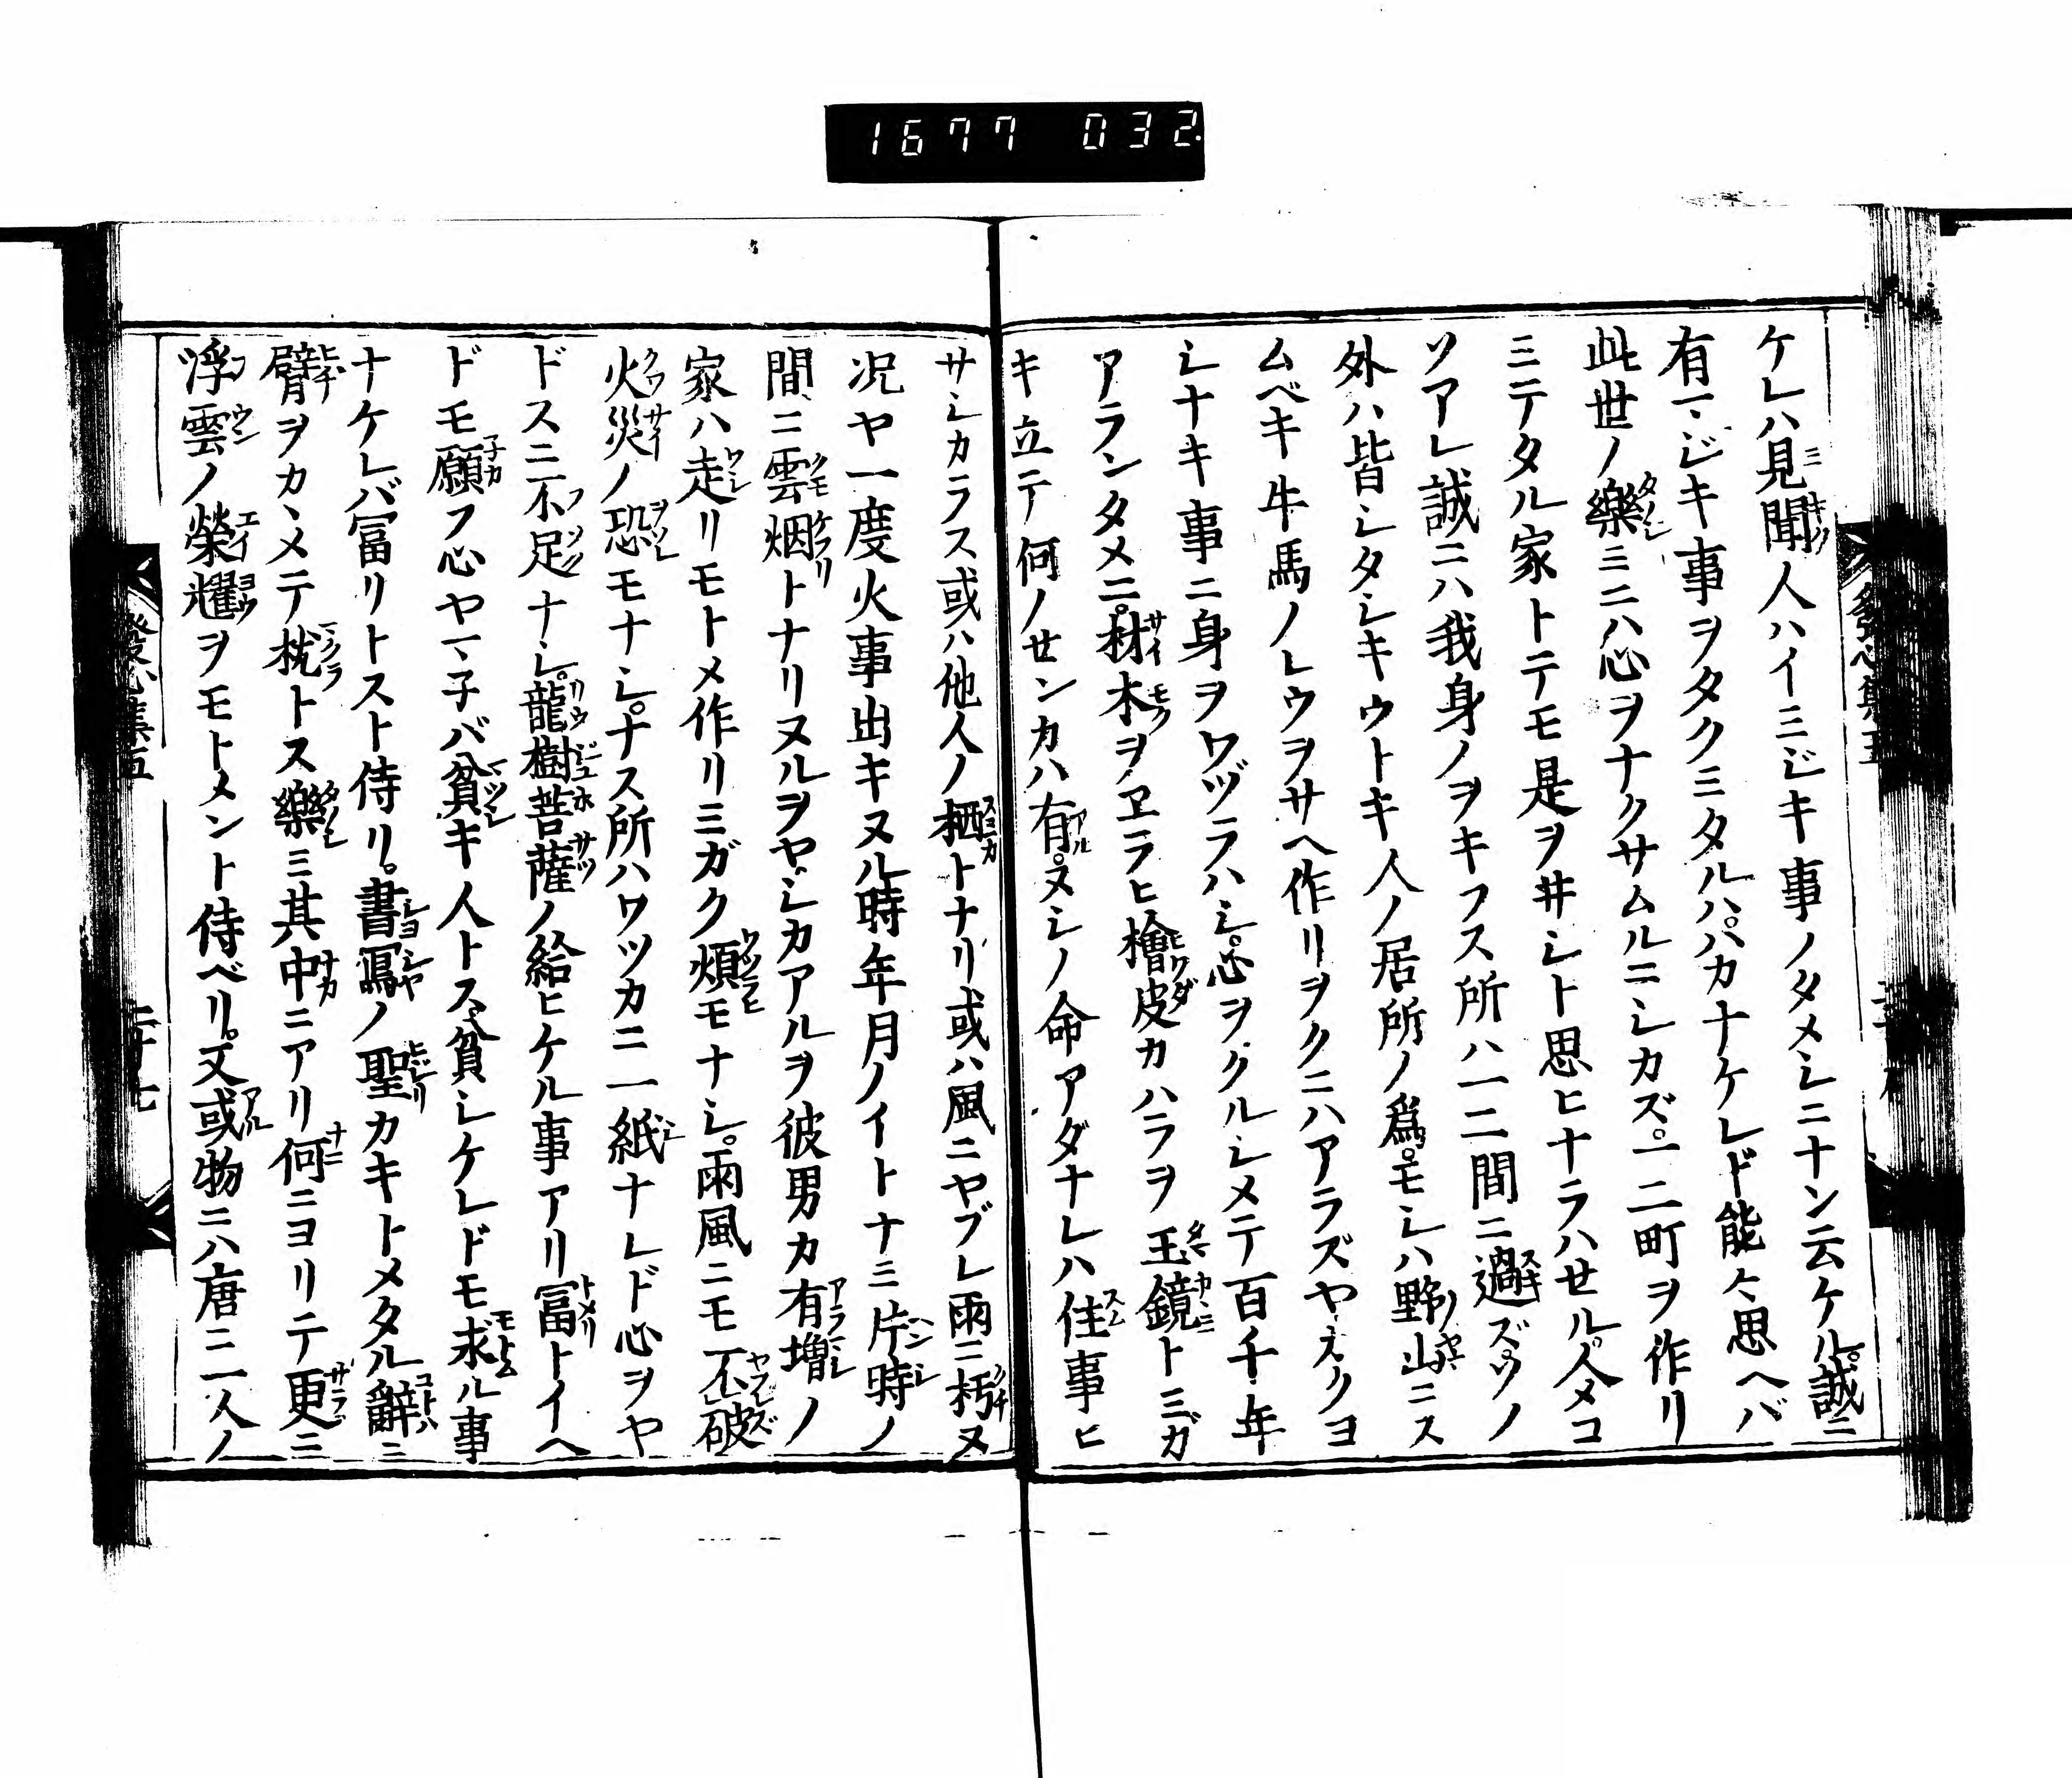 1677 032
ケレハ見聞人ハイミジキ事ノタメシニナン云ケル。誠ニ
有マジキ事ヲタクミタルハ。ハカナケレド能々思ヘバ
此世ノ樂ミニハ心ヲナクサムルニシカズ。一二町ヲ作リ
ミテタル家トテモ是ヲ井シト思ヒナラハセル。人メコ
ソアレ誠ニハ我身ノヲキフス所ハ一二間ニ過ズ。ソノ
外ハ皆シタシキウトキ人ノ居所ノ爲。モシハ野山ニス
ムベキ牛馬ノレウヲサヘ作リヲクニハアラズヤ。ヱクヨ
シナキ事ニ身ヲワヅラハシ。心ヲクルシメテ百千年
アランタメニ。材木ヲヱラヒ檜皮カハラヲ玉鏡トミガ
キ立テ何ノセンカハ有。ヌシノ命アダナレハ住事ヒ
サシカラス或ハ他人ノ栖トナリ或ハ風ニヤブレ雨ニ朽ヌ
况ヤ一度火事出キヌル時年月ノイトナミ片時ノ
間ニ雲烟トナリヌルヲヤ。シカアルヲ彼男カ有増ノ
家ハ走リモトメ作リミガク煩モナシ。雨風ニモ不破
火災ノ恐モナシ。ナス所ハワツカニ一紙ナレド心ヲヤ
ドスニ不足ナシ。龍樹菩薩ノ給ヒケル事アリ冨トイヘ
ドモ願フ心ヤマ子バ貧キ人トス。貧シケレドモ求ル事
ナケレバ冨リトスト侍リ。書寫ノ聖カキトメタル辭ニ
臂ヲカヽメテ枕トス樂ミ其中ニアリ何ニヨリテ更ニ
浮雲ノ榮耀ヲモトメント侍ベリ。又或物ニハ唐ニ一人ノ
發心集五
二十七